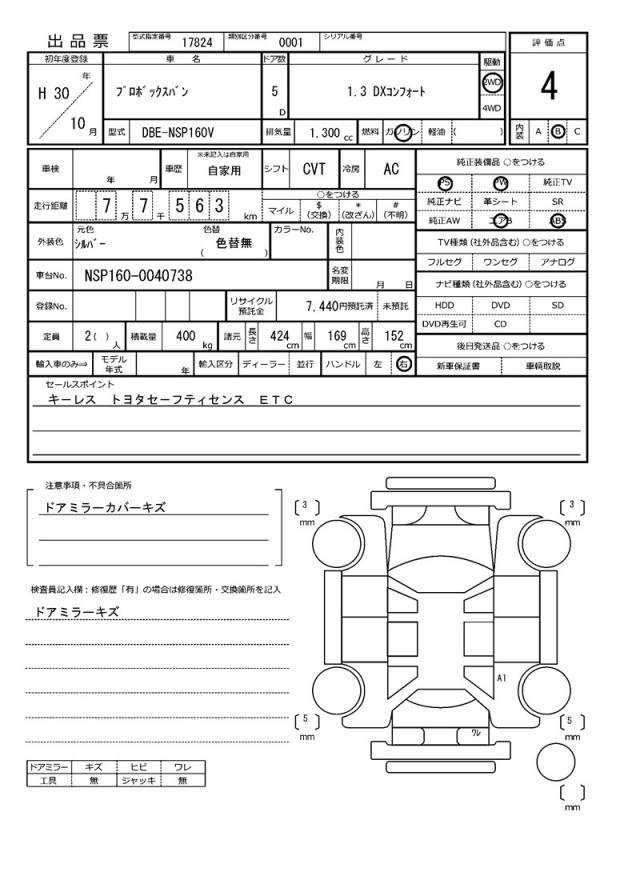 出品票 型式指定番号 17824 類別区分番号 0001 シリアル番号
評価点
4
初年度登録 車名 ドア数 グレード 駆動
H 30 年 10 月
プロボックスバン 5 D 1.3 DXコンフォート 2WD
4WD
型式 DBE-NSP160V 排気量 1.300 cc 燃料 ガソリン 軽油 ( )
内装 A B C
車検 年 月 車歴 ※未記入は自家用 自家用 シフト CVT 冷房 AC
走行距離 7 万 7 千 5 6 3 km
○をつける
マイル $ (交換) * (改ざん) # (不明)
外装色 元色 シルバー 色替 色替無 ( ) カラーNo. 内装色
車台No. NSP160-0040738 名変期限 月 日
登録No. リサイクル預託金 7,440円預託済 未預託
定員 2( ) 人 積載量 400 kg 諸元 長さ 424 cm 幅 169 cm 高さ 152 cm
輸入車のみ⇒ モデル年式 年 輸入区分 ディーラー 並行 ハンドル 左 右
純正装備品 ○をつける
PS PW 純正TV
純正ナビ 革シート SR
純正AW エアB ABS
TV種類 (社外品含む) ○をつける
フルセグ ワンセグ アナログ
ナビ種類 (社外品含む) ○をつける
HDD DVD SD
DVD再生可 CD
後日発送品 ○をつける
新車保証書 車輌取説
セールスポイント
キーレス トヨタセーフティセンス ETC
注意事項・不具合箇所
ドアミラーカバーキズ
検査員記入欄：修復歴「有」の場合は修復箇所・交換箇所を記入
ドアミラーキズ
ドアミラー キズ ヒビ ワレ
工具 無 ジャッキ 無
[ 3 ] mm
[ 3 ] mm
A1
[ 5 ] mm
ワレ
[ 5 ] mm
[ ] mm